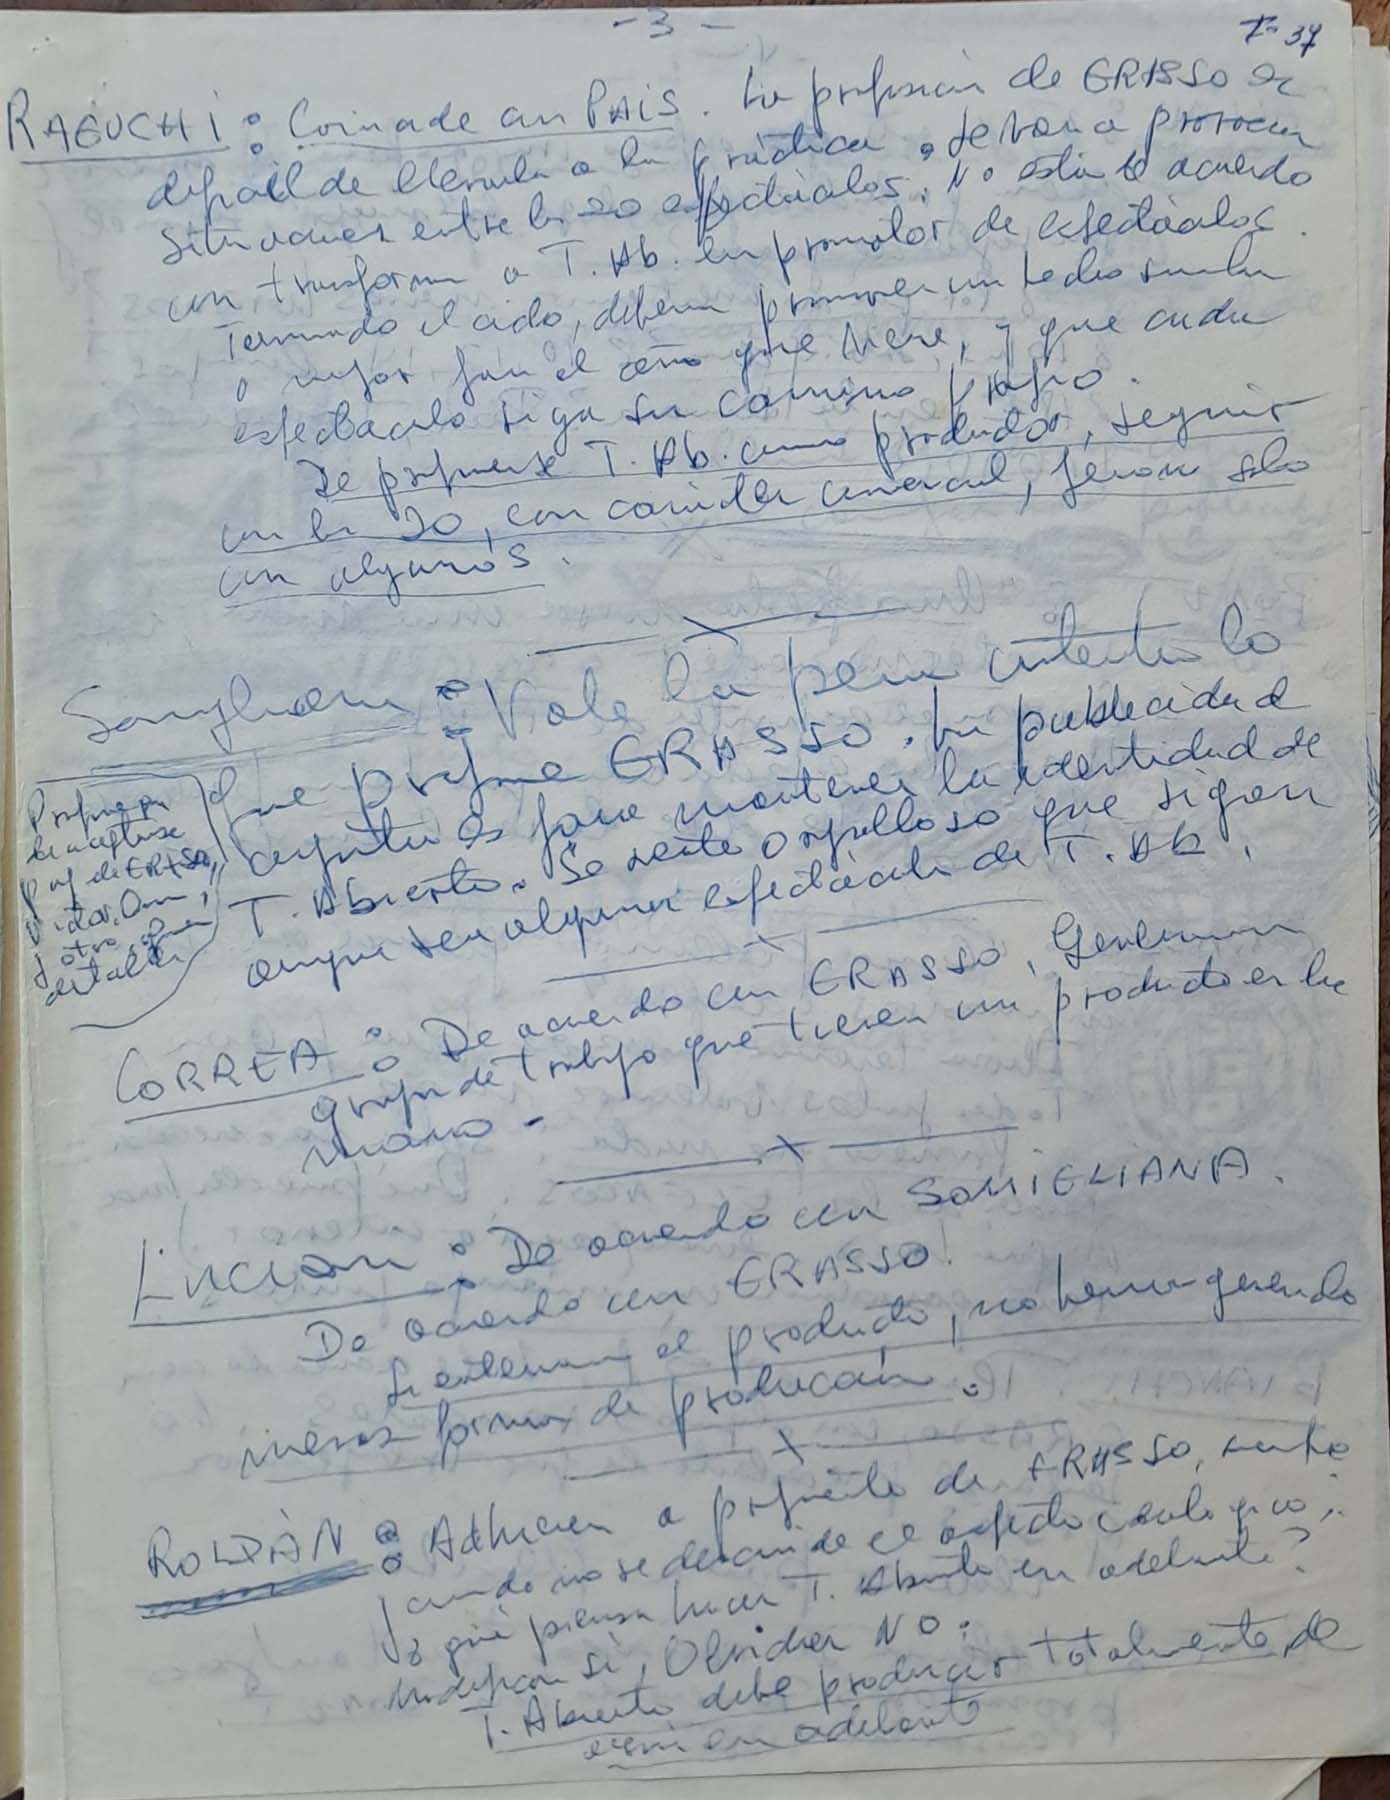 - 3 -
T- 37
RAGUCHI : Coincide con PAIS. La proposición de GRASSO es
difícil de llevarla a la práctica, se van a provocar
situaciones entre los 20 espectáculos. No está de acuerdo
con transformar a T. Ab. en promotor de espectáculos.
Terminado el ciclo, deberá promover un hecho similar
o mejor para el año que viene, y que cada
espectáculo siga su camino propio.
De proponerse T. Ab. como productor, seguir
con los 20, con carácter comercial, serían solo
con algunos.
Somigliana : Vale la pena intentar lo
que propone GRASSO. La publicidad
conjunta es para mantener la identidad de
T. Abierto. Se siente orgulloso que sigan
aunque sea algunos espectáculos de T. Ab.
Propone
de aceptarse
prop. de GRASSO,
detalles
CORREA : De acuerdo con GRASSO, Generaron
grupos de trabajo que tienen un producto en la
mano -
Luciano : De acuerdo con SOMIGLIANA.
De acuerdo con GRASSO.
Si externan el producto, no hemos generado
nuevas formas de producción.
ROLDÁN : Adhieren a propuesta de GRASSO, siempre
y cuando no se descuide el aspecto ideológico;
¿ qué piensa hacer T. Abierto en adelante?
Modificar si, Olvidar NO.
T. Abierto debe producir totalmente de
aquí en adelante